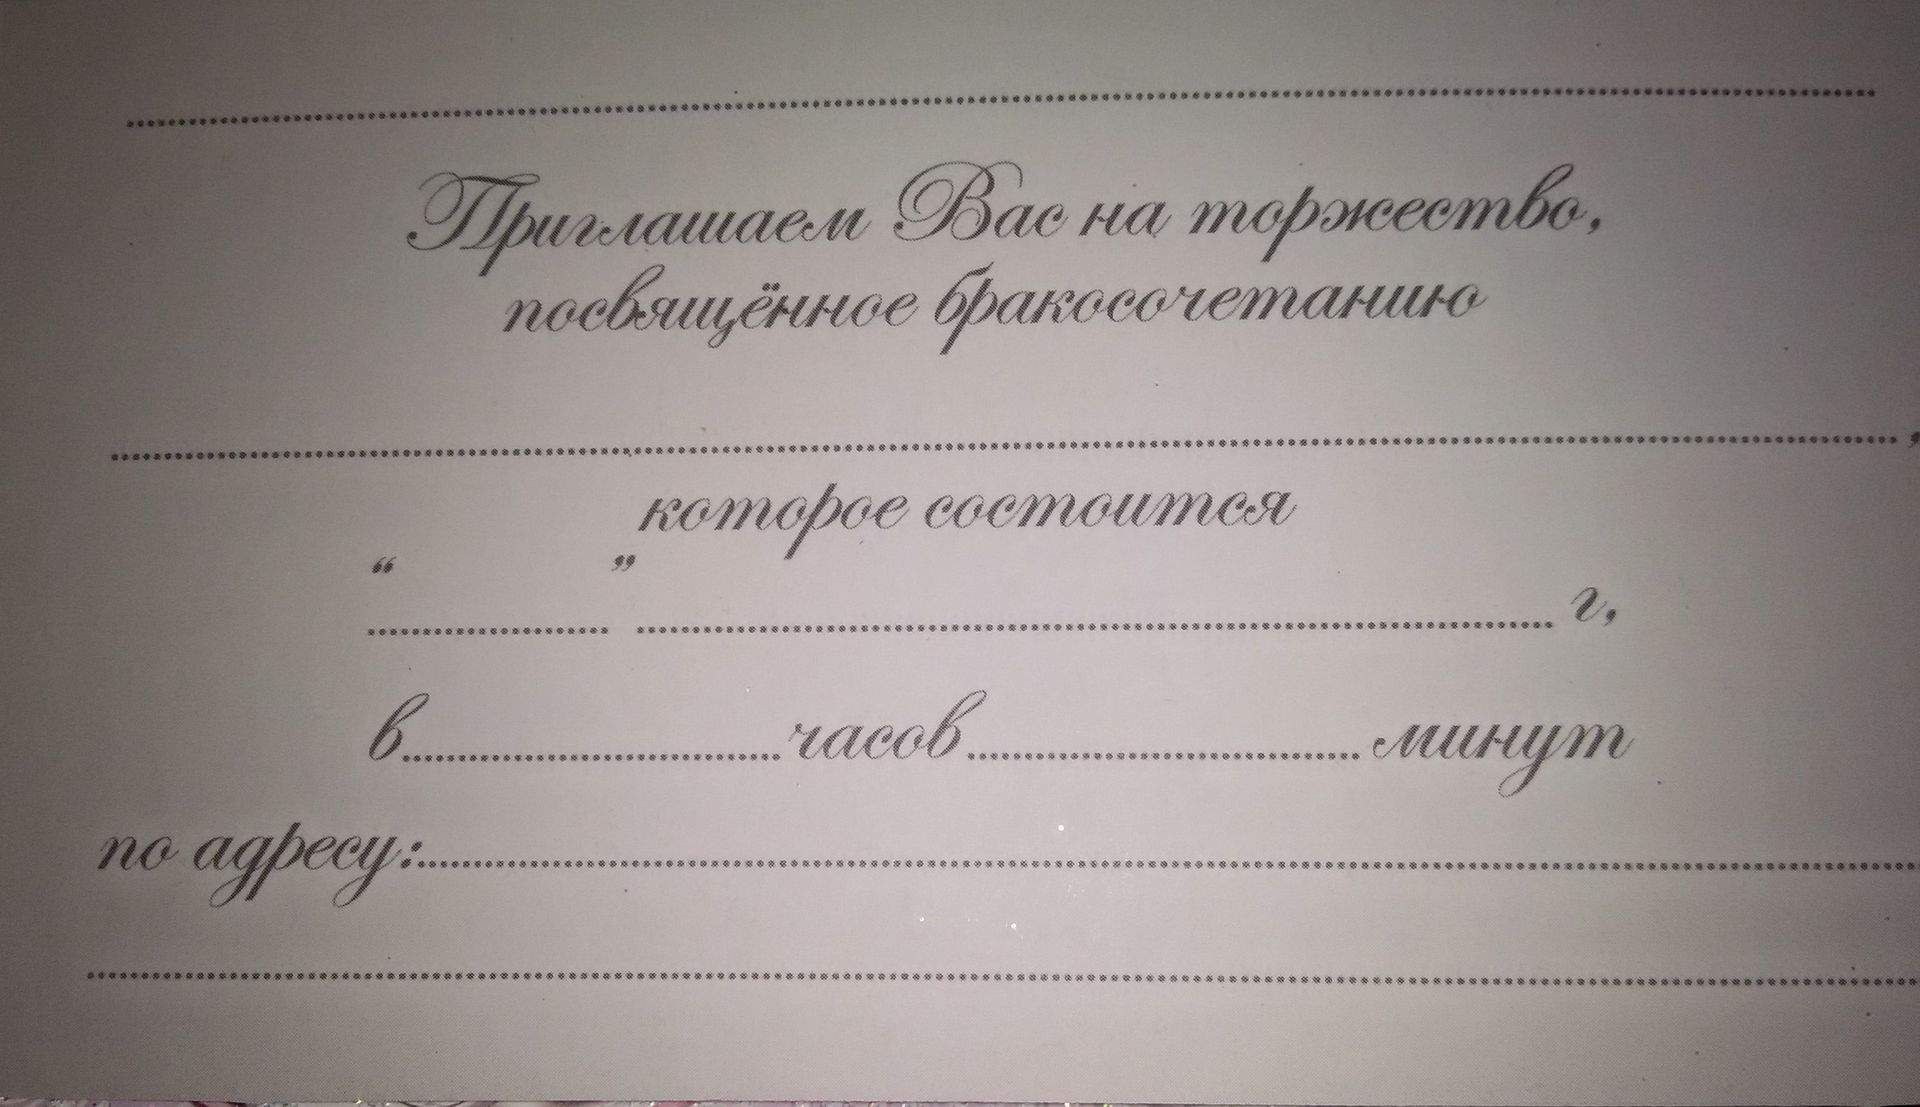 Приглашаем Вас на торжество,
посвящённое бракосочетанию
,
которое состоится
“ ” г.
в часов минут
по адресу: